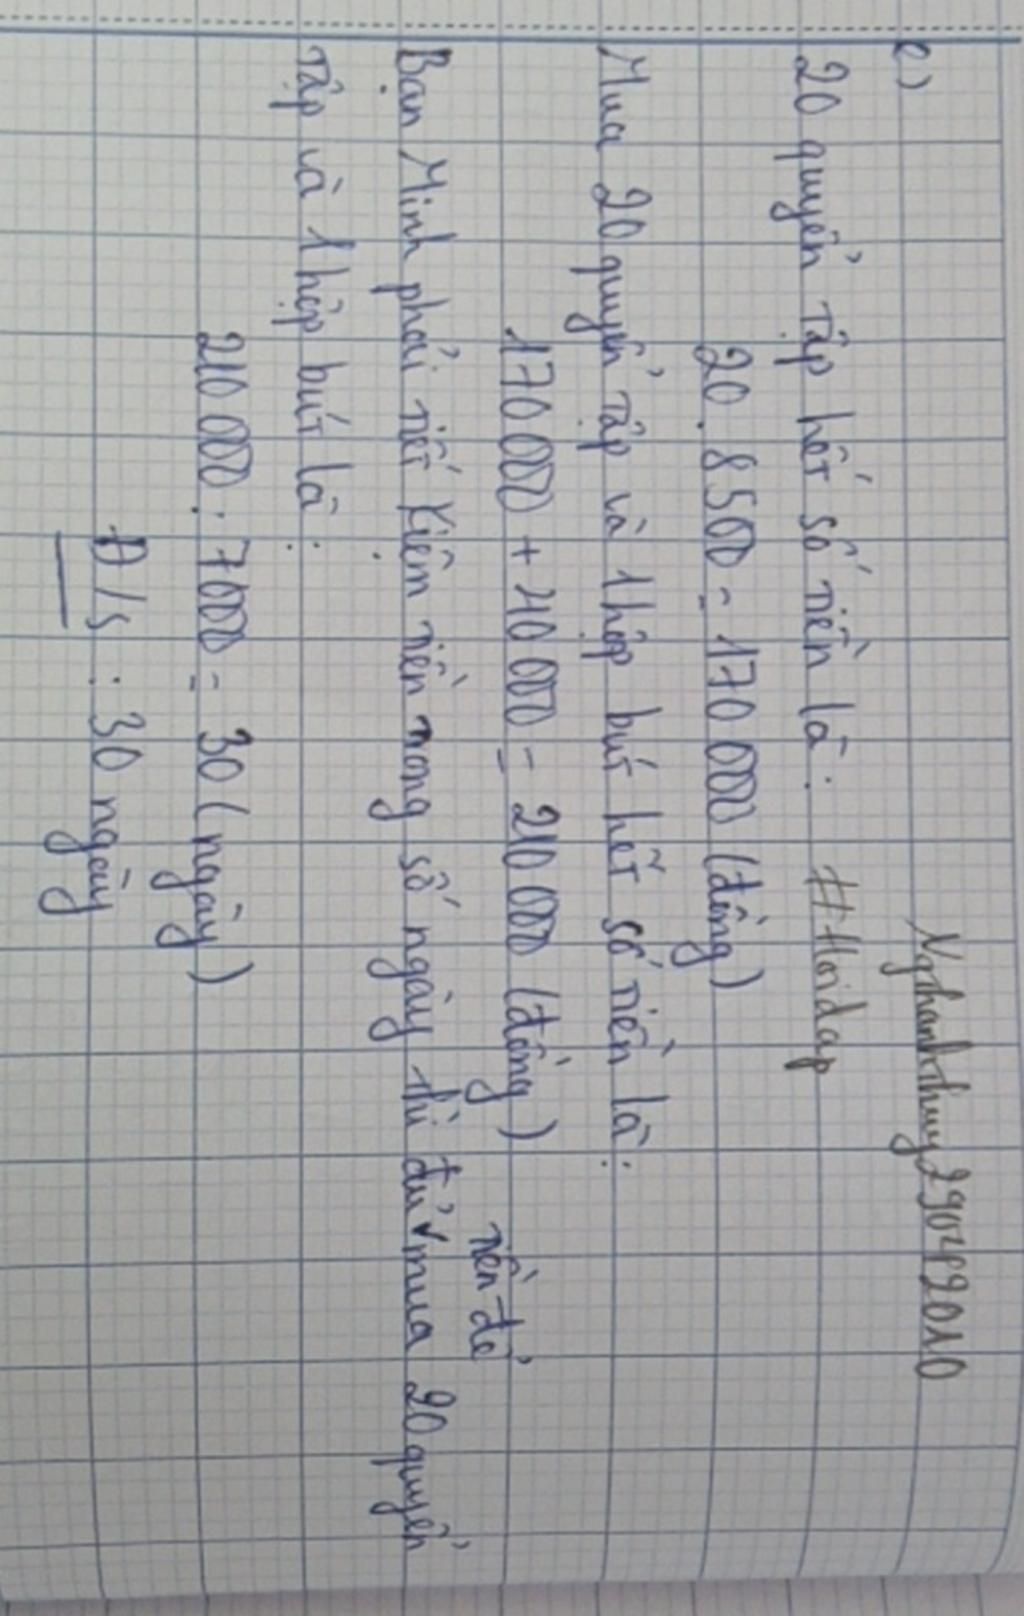 e)
Ngthanhthuy29042010
20 quyển tập hết số tiền là: #Hoidap
20.8500 = 170000 (đồng)
Mua 20 quyển tập và 1 hộp bút hết số tiền là:
170000 + 40000 = 210000 (đồng)
tiền để
Bạn Minh phải tiết kiệm tiền trong số ngày thì đủ mua 20 quyển
tập và 1 hộp bút là:
210000 : 7000 = 30 (ngày)
Đ/s : 30 ngày